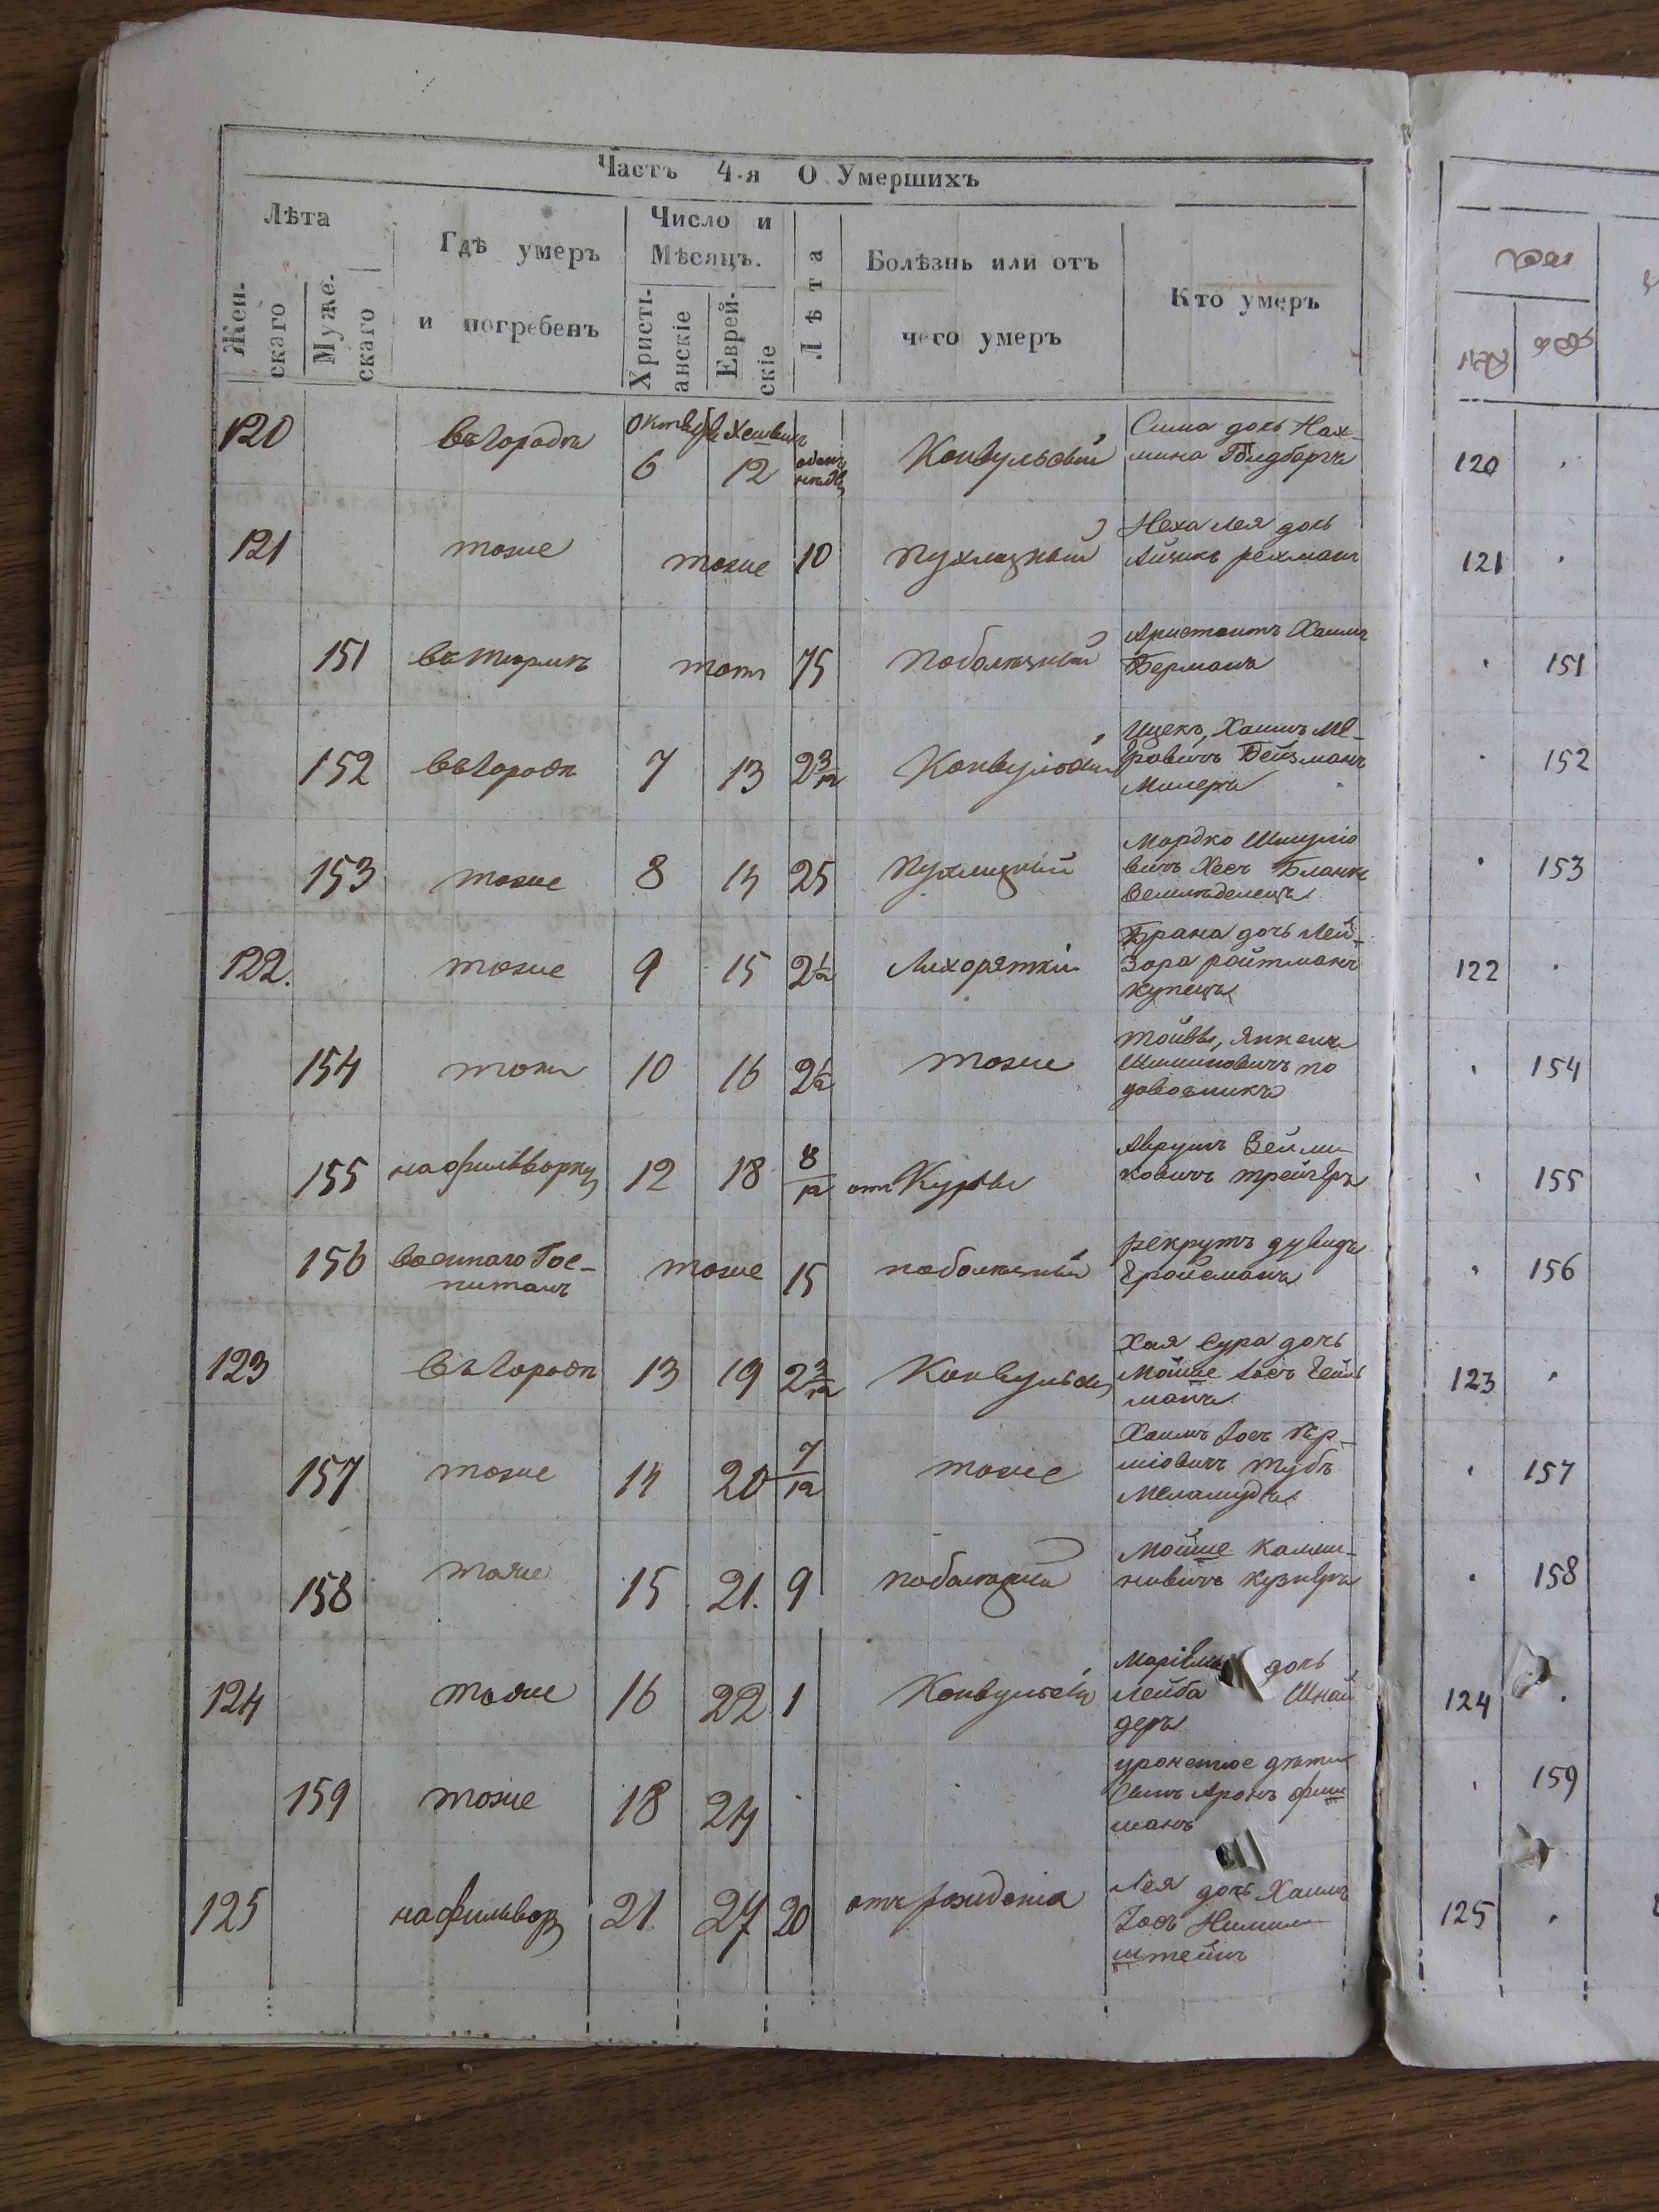 Часть 4-я О Умершихъ
Лѣта
Жен-
скаго
Муже.
скаго
Гдѣ умеръ
и погребенъ
Число и
Мѣсяцъ.
Христі-
анскіе
Еврей-
скіе
Лѣта
Болѣзнь или отъ
чего умеръ
Кто умеръ
120 въ городѣ Октяб Хешвинъ 6 12 Конвульсіи
Сима дочь Нах-
мана Голдбергъ
121 тоже тоже 10 пухлизный
Неха Лея дочь
Айзикъ рехманъ
151 въ тюрмѣ тоже 75 поболизный
Аристантъ Хаимъ
Берманъ
152 въ городѣ 7 13 2 3/12 Конвульсіи
Ицекъ, Хаимъ Ме-
ровичъ Бейзманъ
Милеръ
153 тоже 8 14 25 пухлизный
Мордко Шмуліо
вичъ Хесъ Бланкъ
122. тоже 9 15 2 1/2 Лихорятки
Брана дочь Лей-
зора ройтманъ
купецъ
154 тоже 10 16 2 1/2 тоже
Тойвы, Янкель
Шминовичъ по
довозникъ
155 на фильворку 12 18 8/12 отъ Курты
Аврумъ Зейли-
ковичъ трейгеръ
156 военнаго Гос-
питаль
тоже 15 поболизный
рекрутъ дувидъ
Гройсманъ
123 въ городѣ 13 19 2 3/12 Конвульсіи
Хая Сура дочь
Мойше Іосъ Гейль
манъ
157 тоже 14 20 7/12 тоже
Хаимъ Іосъ Гер-
шіовичъ тубъ
Меламудъ
158 тоже 15 21. 9 поболизни
Мойше Калми-
новичъ кузнеръ
124 тоже 16 22 1 Конвульсіи
дочь
Лейба Шнай
деръ
159 тоже 18 24
уроненое дѣти
Сынъ Аронъ фиш
манъ
125 на фильвор 21 27 20 отъ рожденія
Лея дочь Хаимъ
Іосъ Нимил
штейнъ
120 .
121 .
. 151
. 152
. 153
122 .
. 154
. 155
. 156
123 .
. 157
. 158
124 .
. 159
125 .